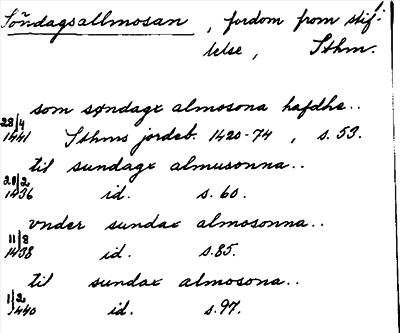 Söndagsallmosan, fordom from stif-
telse, Sthm.
som søndagx almosona hafdhe..
28/4 1441 Sthms jordeb. 1420-74, s. 53.
til sundagx almusonna..
20/2 1436 id. s. 60.
vnder sundax almosonna..
11/8 1438 id. s. 85.
til sundax almosona..
1/2 1440 id. s. 97.